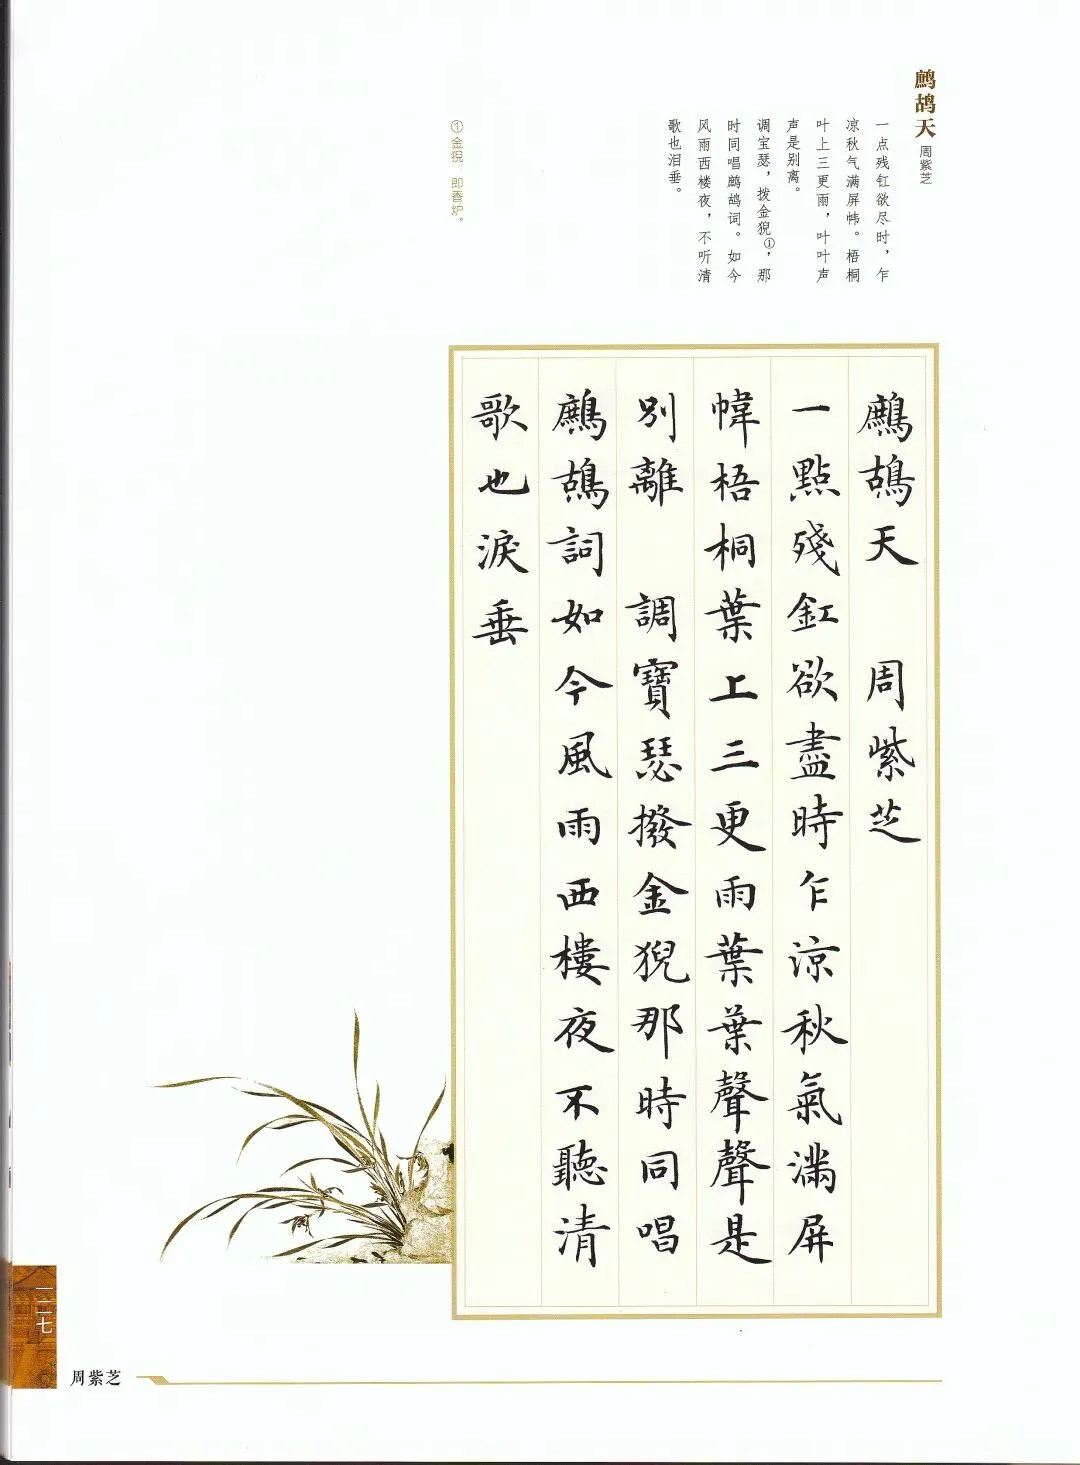 鹧鸪天 周紫芝
一点残釭欲尽时，乍
凉秋气满屏帏。梧桐
叶上三更雨，叶叶声
声是别离。
调宝瑟，拨金猊①，那
时同唱鹧鸪词。如今
风雨西楼夜，不听清
歌也泪垂。
①金猊 即香炉。
鷓鴣天 周紫芝
一點殘釭欲盡時乍涼秋氣滿屏
幃梧桐葉上三更雨葉葉聲聲是
別離 調寶瑟撥金猊那時同唱
鷓鴣詞如今風雨西樓夜不聽清
歌也淚垂
一二七
周紫芝